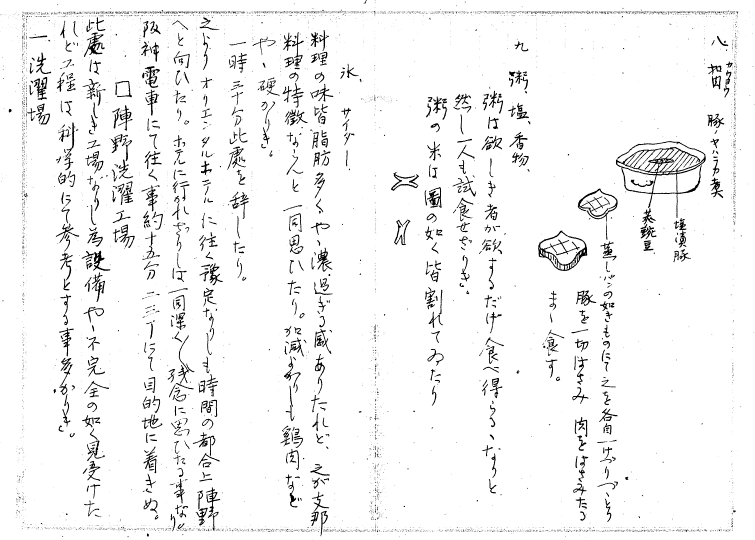 八、扣肉 豚ノヤハラカ煮
カウロウ
塩漬豚
蒸豌豆
蒸しパンの如きものにて之を各自一ケづゝとり
豚を一切はさみ 肉をはさみたる
まゝ食す。
九 粥、塩、香物、
粥は欲しき者が欲するだけ食べ得らるゝなりと
然し一人も試食せざりき。
粥の米は圖の如く皆割れてゐたり
氷、サイダー
料理の味皆脂肪多くやゝ濃過ぎる感ありたれど、之が支那
料理の特徴ならんと一同思ひたり。加減よりしも鶏肉など
やゝ硬かりき。
一時三十分此處を辞したり。
之よりオリエンタルホテルに往く豫定なりしも時間の都合上陣野
へと向ひたり。ホテルに行かれざりしは一同深く残念に思ひたる事なり。
阪神電車にて往く事約十五分 二三丁にて目的地に着きぬ。
□ 陣野洗濯工場
此處は新しき工場なりし為設備やゝ不完全の如く見受けた
れど工程は科学的にて参考とする事多かりき。
一 洗濯場